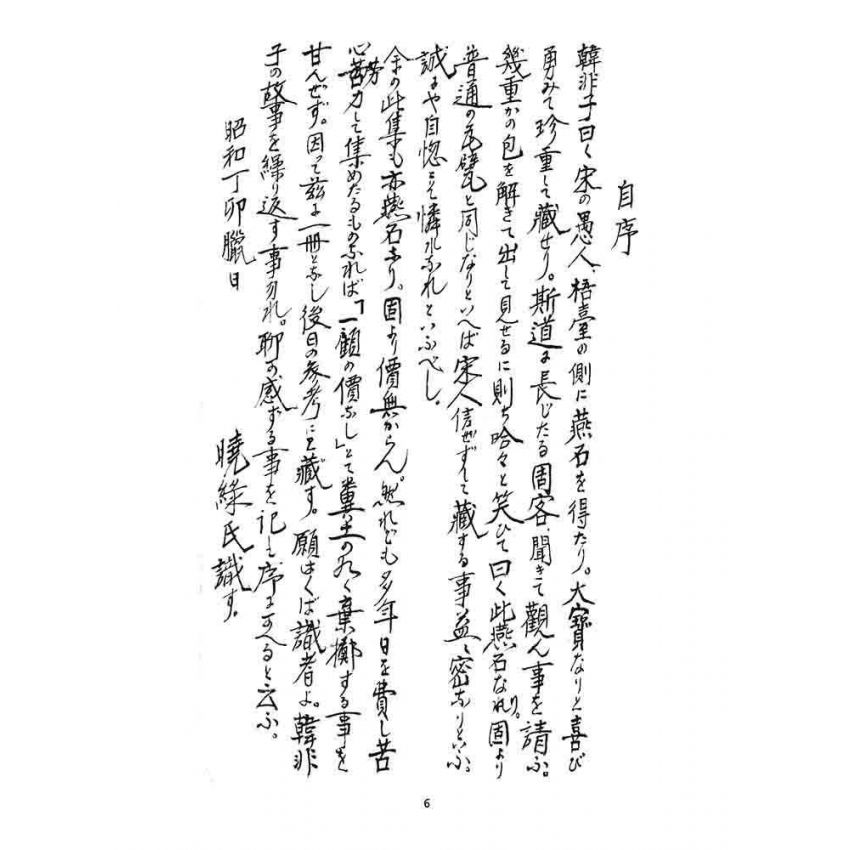 自序
韓非子曰く宋の愚人、梧臺の側に燕石を得たり。大寶なりと喜び
勇みて珍重して藏せり。斯道に長じたる周客、聞きて觀ん事を請ふ。
幾重かの包を解きて出して見せるに則ち哈々と笑ひて曰く此燕石なり。固より
普通の瓦甓と同じなりといへば宋人信ぜずして藏する事益々密なりといふ。
誠にや自惚こそ憐れなれといふべし。
余の此集も亦燕石なり。固より價無からん。然れども多年日を費し苦
心勞力して集めたるものなれば「一顧の價なし」とて糞土の如く棄擲する事を
甘んぜず。因って茲に一冊となし後日の參考にと藏す。願はくば識者よ。韓非
子の故事を繰り返す事勿れ。聊か感ずる事を記し序に代へると云ふ。
昭和丁卯臘日
曉綠氏識す。
6